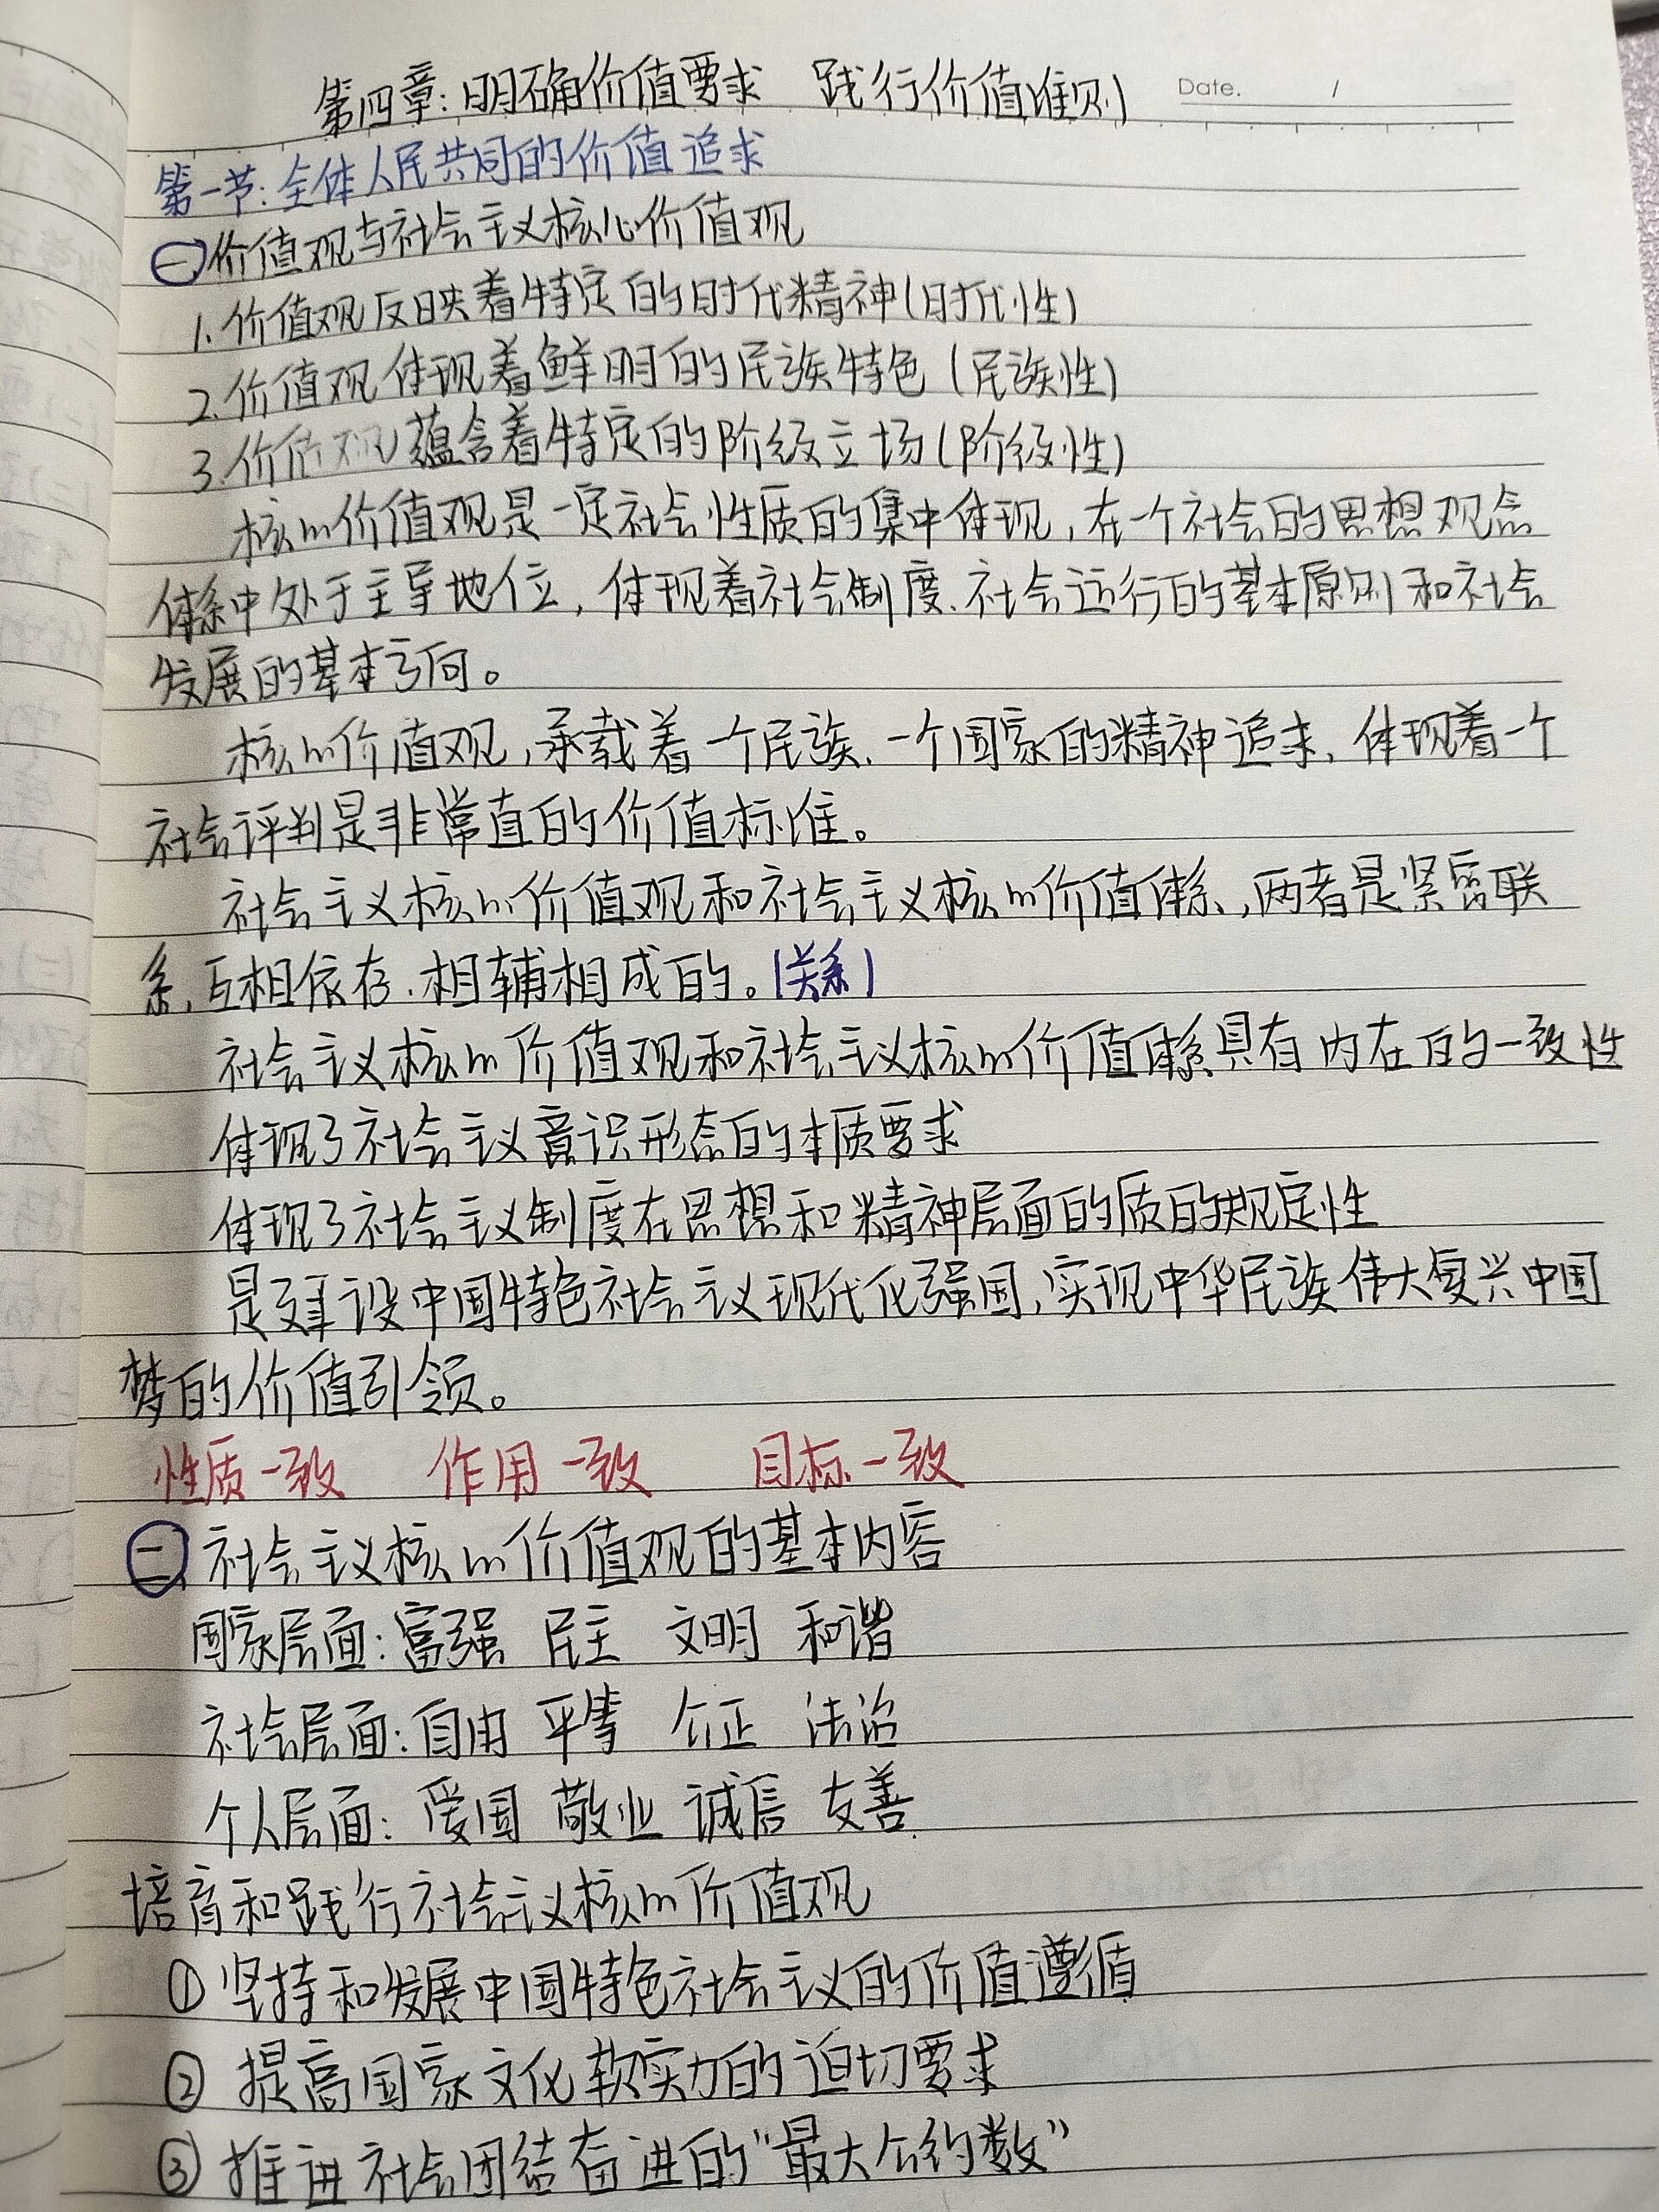 第四章:明确价值要求 践行价值准则
Date. /
第一节:全体人民共同的价值追求
㊀价值观与社会主义核心价值观
1.价值观反映着特定的时代精神(时代性)
2.价值观体现着鲜明的民族特色(民族性)
3.价值观蕴含着特定的阶级立场(阶级性)
核心价值观是一定社会性质的集中体现,在一个社会的思想观念
体系中处于主导地位,体现着社会制度、社会运行的基本原则和社会
发展的基本方向。
核心价值观,承载着一个民族、一个国家的精神追求,体现着一个
社会评判是非常直的价值标准。
社会主义核心价值观和社会主义核心价值体系,两者是紧密联
系、互相依存、相辅相成的。(关系)
社会主义核心价值观和社会主义核心价值体系具有内在的一致性
体现了社会主义意识形态的本质要求
体现了社会主义制度在思想和精神层面的质的规定性
是建设中国特色社会主义现代化强国,实现中华民族伟大复兴中国
梦的价值引领。
性质一致 作用一致 目标一致
㊁社会主义核心价值观的基本内容
国家层面:富强 民主 文明 和谐
社会层面:自由 平等 公正 法治
个人层面:爱国 敬业 诚信 友善
培育和践行社会主义核心价值观
①坚持和发展中国特色社会主义的价值遵循
②提高国家文化软实力的迫切要求
③推进社会团结奋进的"最大公约数"